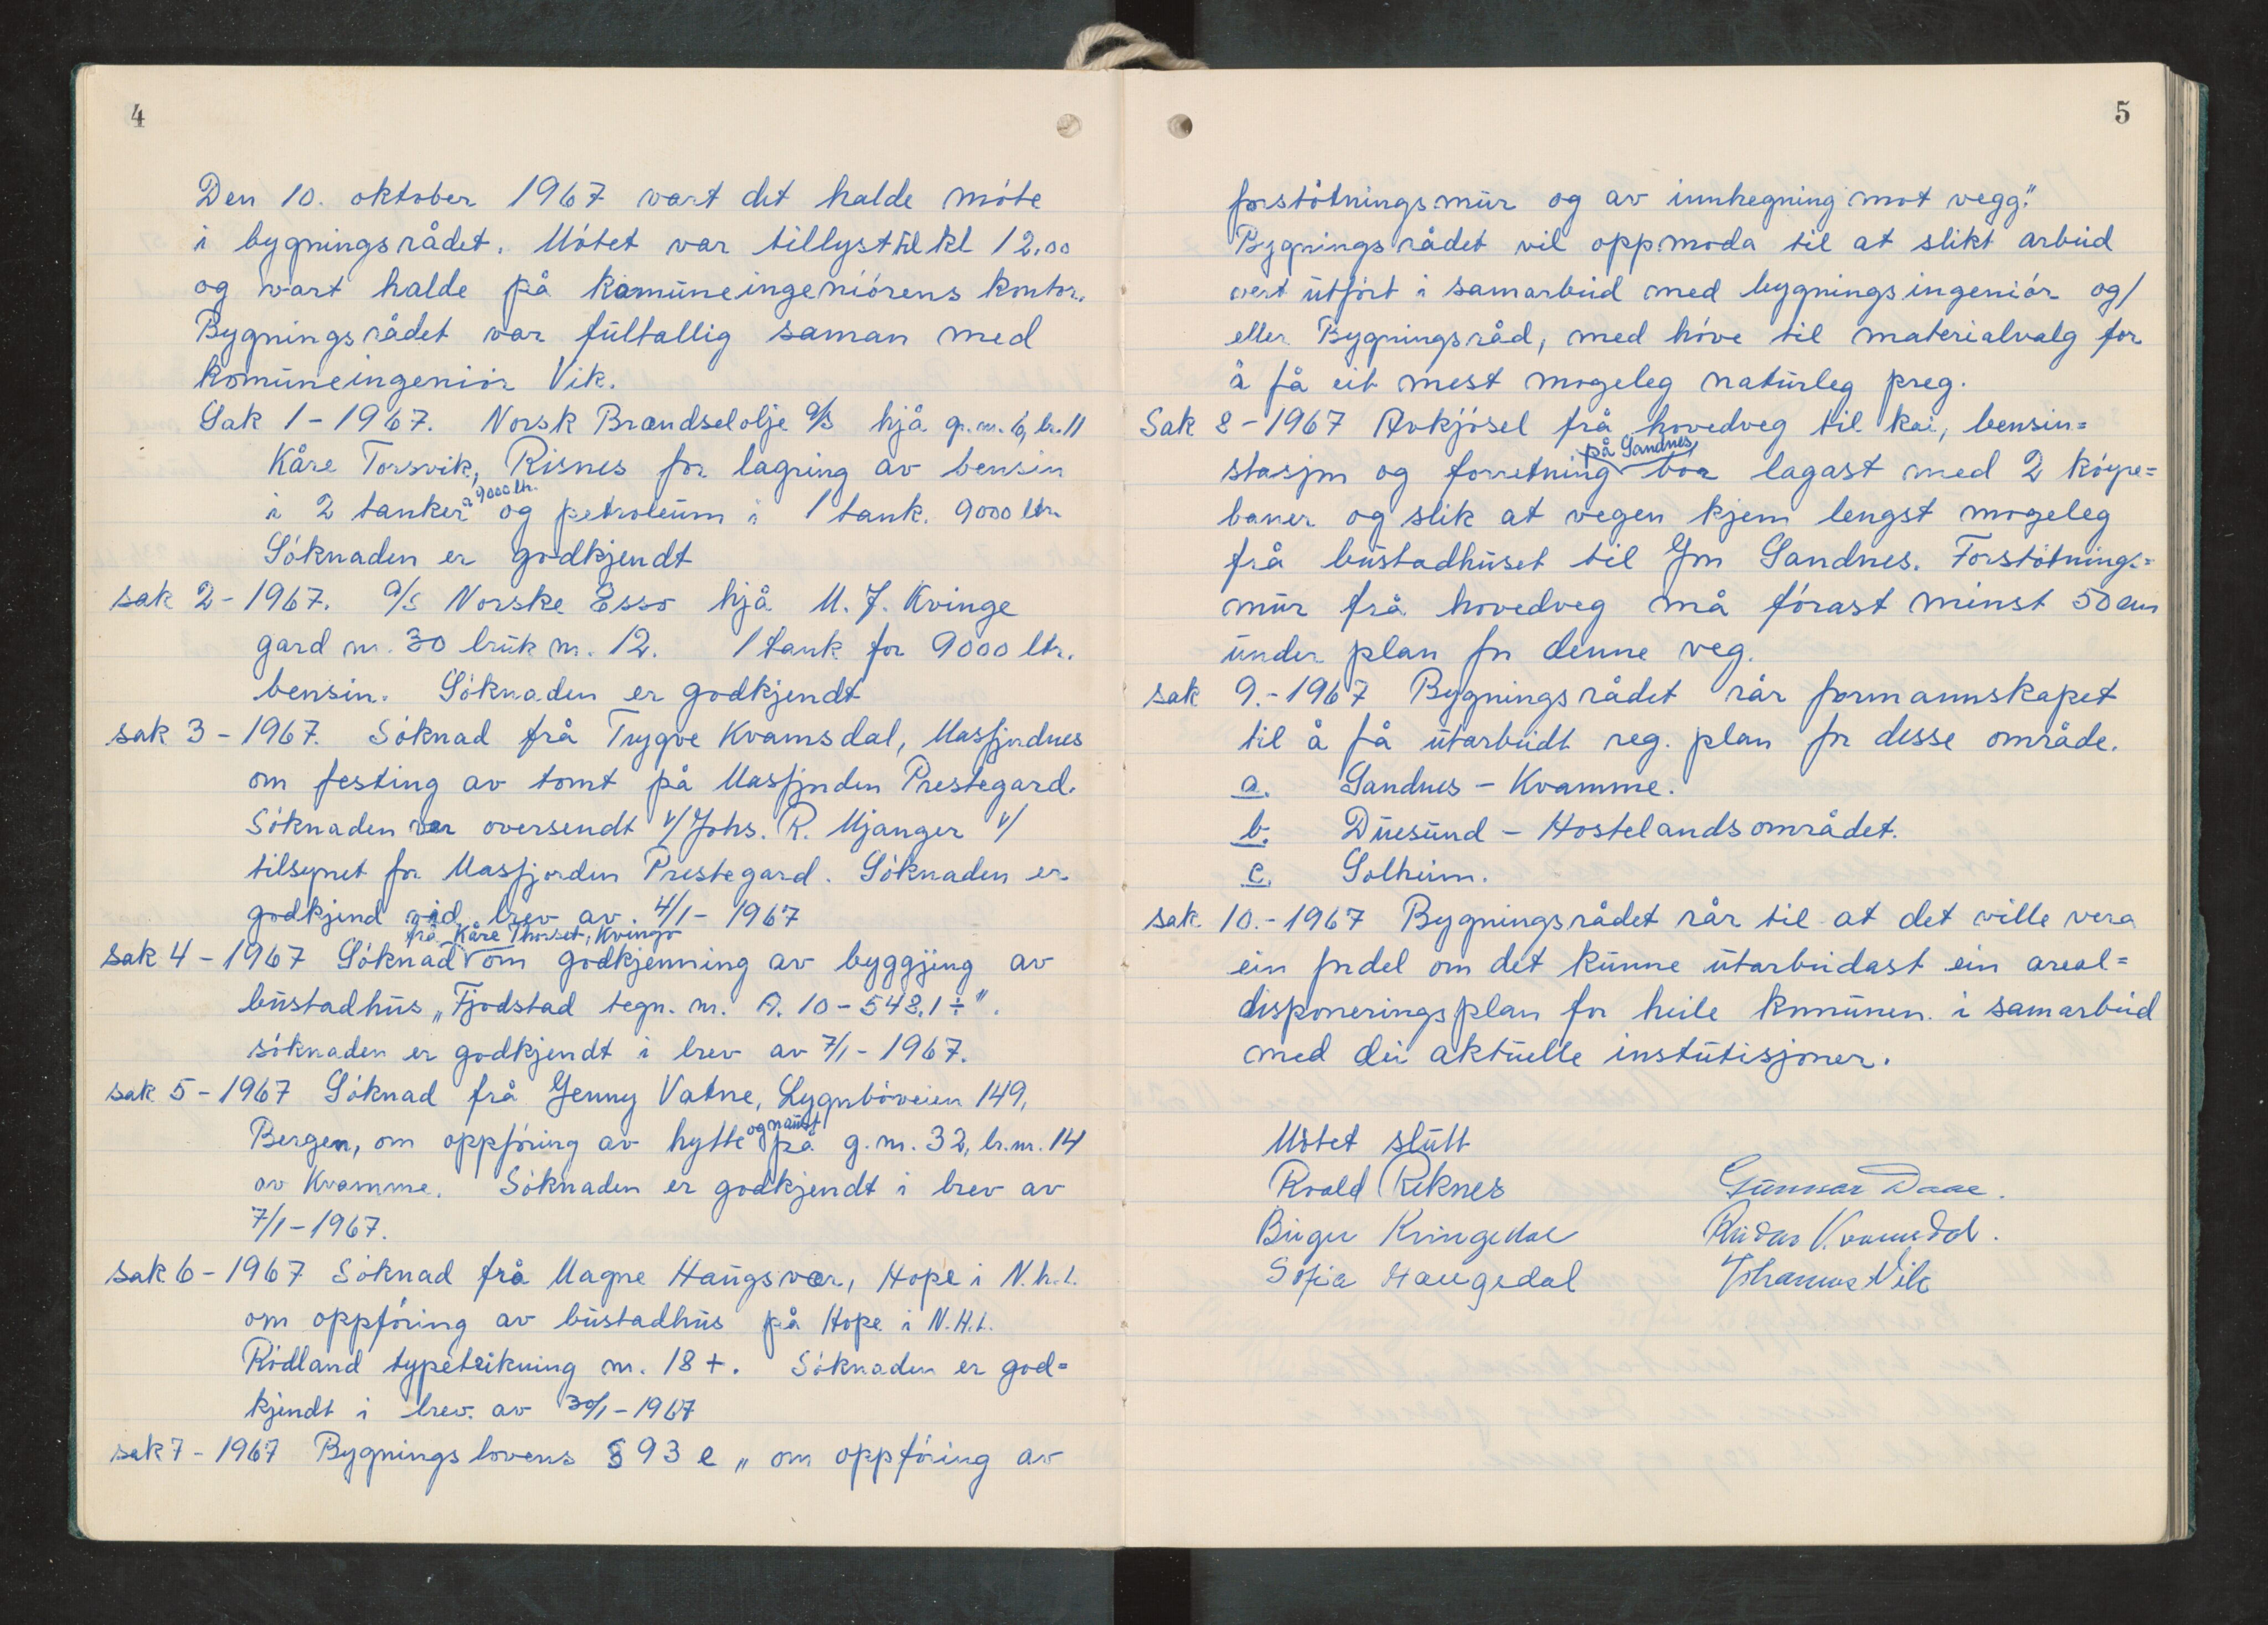 4
Den 10. oktober 1967 vart det halde møte
i bygningsrådet. Møtet var tillyst til kl 12,00
og vart halde på komuneingeniørens kontor.
Bygningsrådet var fultallig saman med
komuneingeniør Vik.
Sak 1-1967. Norsk Brændselolje a/s hjå g.nr. 6, br. 11
Kåre Torsvik, Risnes for lagring av bensin
i 2 tanker à 9000 ltr. og petroleum i 1 tank. 9000 ltr.
Søknaden er godkjendt
sak 2-1967. a/s Norske Esso hjå M. J. Kvinge
gard nr. 30 bruk nr. 12. 1 tank for 9000 ltr.
bensin. Søknaden er godkjendt
sak 3-1967. Søknad frå Trygve Kvamsdal, Masfjordnes
om festing av tomt på Masfjorden Prestegard.
Søknaden var oversendt v/Johs. R. Mjanger v/
tilsynet for Masfjorden Prestegard. Søknaden er
godkjend vid brev av. 4/1-1967
sak 4-1967 Søknad frå Kåre Thorset, Kvinge om godkjenning av byggjing av
bustadhus „Fjodstad tegn. nr. A. 10-548.1÷".
søknaden er godkjendt i brev av 7/1-1967.
sak 5-1967 Søknad frå Jenny Vatne, Lyngbøveien 149,
Bergen, om oppføring av hytte og naust på g.nr. 32, br.nr. 14
av Kvamme. Søknaden er godkjendt i brev av
7/1-1967.
sak 6-1967 Søknad frå Magne Haugsvær, Hope i N.h.l.
om oppføring av bustadhus på Hope i N.H.L.
Rødland typeteikning nr. 18+. Søknaden er god=
kjendt i brev. av 30/1-1967
sak 7-1967 Bygningslovens § 93 e „om oppføring av
5
forstøtningsmur og av innhegning mot vegg."
Bygningsrådet vil oppmoda til at slikt arbeid
vert utført i samarbeid med bygningsingeniør og/
eller Bygningsråd, med høve til materialvalg for
å få eit mest mogeleg naturleg preg.
Sak 8-1967 Avkjøsel frå hovedveg til kai, bensin=
stasjon og forretning på Sandnes bør lagast med 2 køyre=
baner og slik at vegen kjem lengst mogeleg
frå bustadhuset til Jon Sandnes. Forstøtnings=
mur frå hovedveg må førast minst 50 cm
under plan for denne veg.
sak 9.-1967 Bygningsrådet rår formannskapet
til å få utarbeidt reg. plan for desse område.
a. Sandnes - Kvamme.
b. Duesund - Hostelandsområdet.
c. Solheim.
sak. 10.-1967 Bygningsrådet rår til at det ville vera
ein fordel om det kunne utarbeidast ein areal=
disponeringsplan for heile komunen i samarbeid
med dei aktuelle instutisjoner.
Møtet slutt
Roald Reknes Gunnar Daae.
Birger Kvingedal Reidar Kvamsdal.
Sofia Haugsdal Johannes Vik